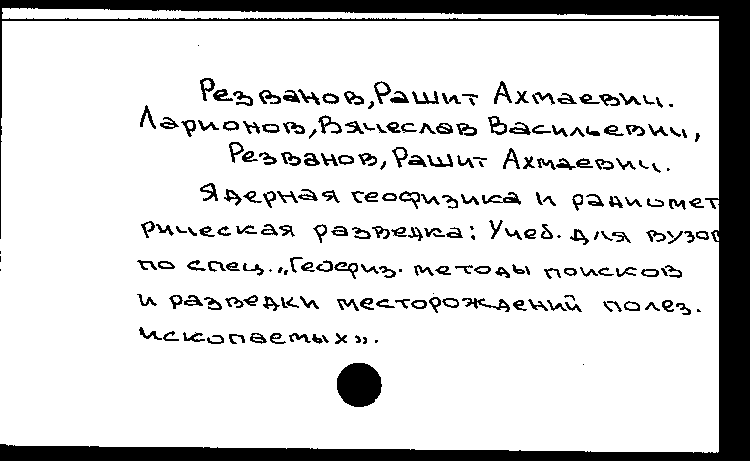 Резванов, Рашит Ахмаевич.
Ларионов, Вячеслав Васильевич,
Резванов, Рашит Ахмаевич.
Ядерная геофизика и радиомет
рическая разведка: Учеб. для вузов
по спец. „Геофиз. методы поисков
и разведки месторождений полез.
ископаемых».